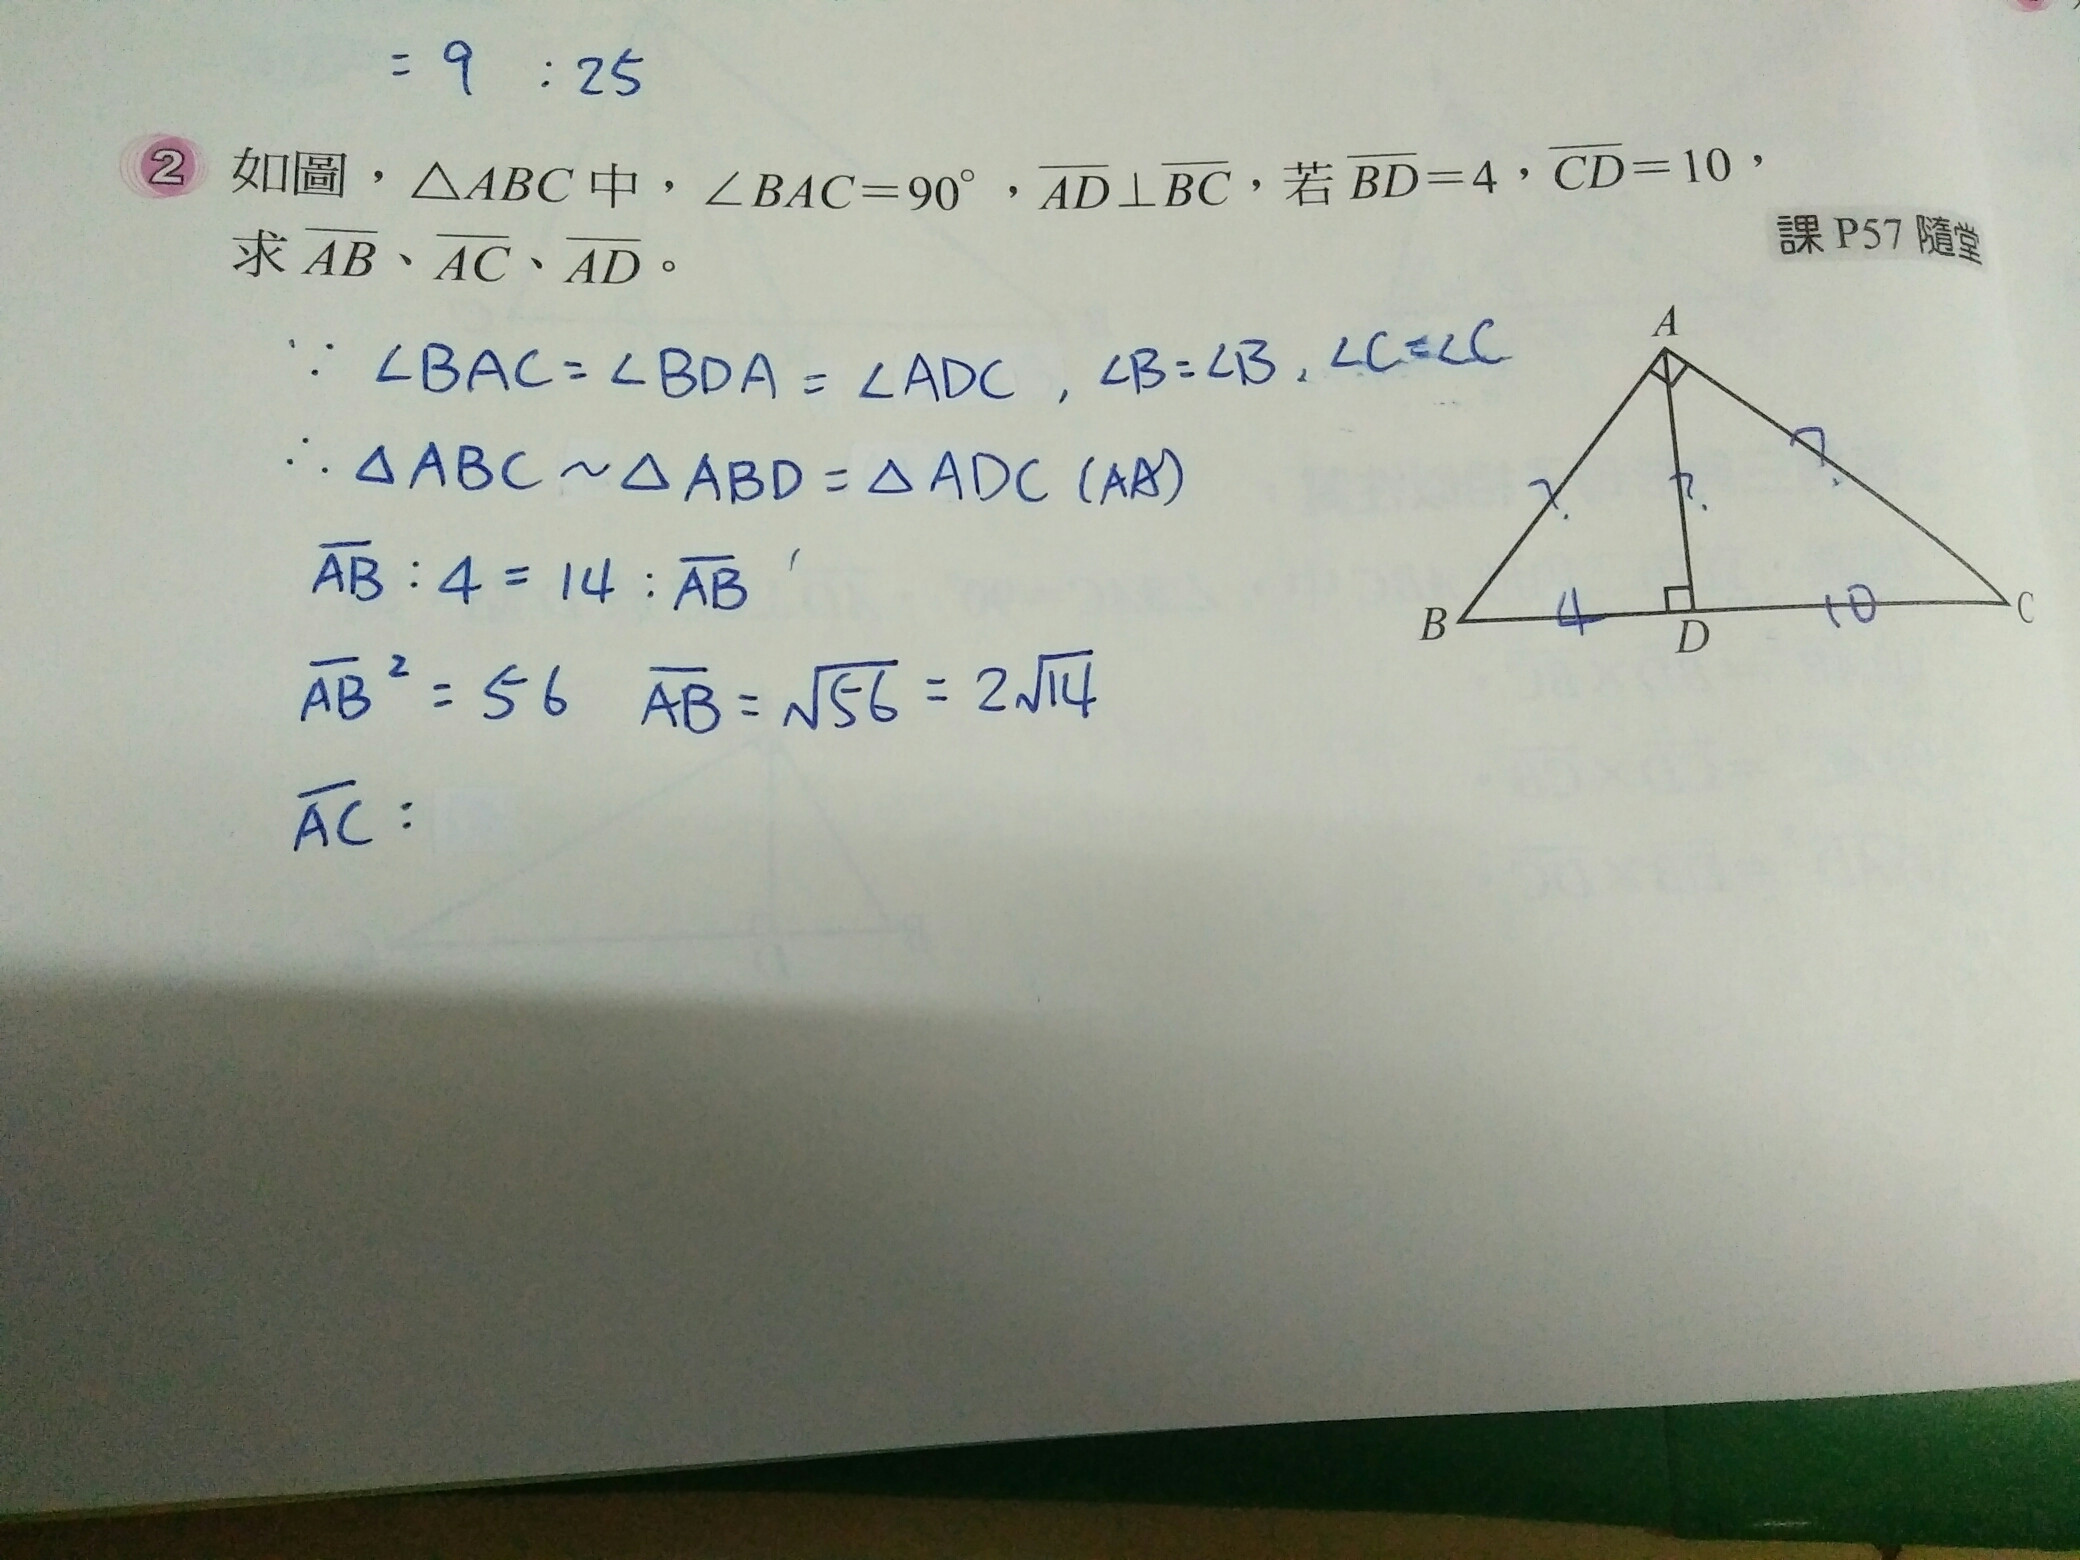 = 9 : 25
2 如圖，△ABC 中，∠BAC=90°，AD⊥BC，若 BD=4，CD=10，
求 AB、AC、AD。
課 P57 隨堂
∵ ∠BAC=∠BDA=∠ADC，∠B=∠B、∠C=∠C
∴ △ABC～△ABD=△ADC (AA)
AB : 4 = 14 : AB
AB² = 56 AB = √56 = 2√14
AC :
A
? ? ?
B 4 D 10 C